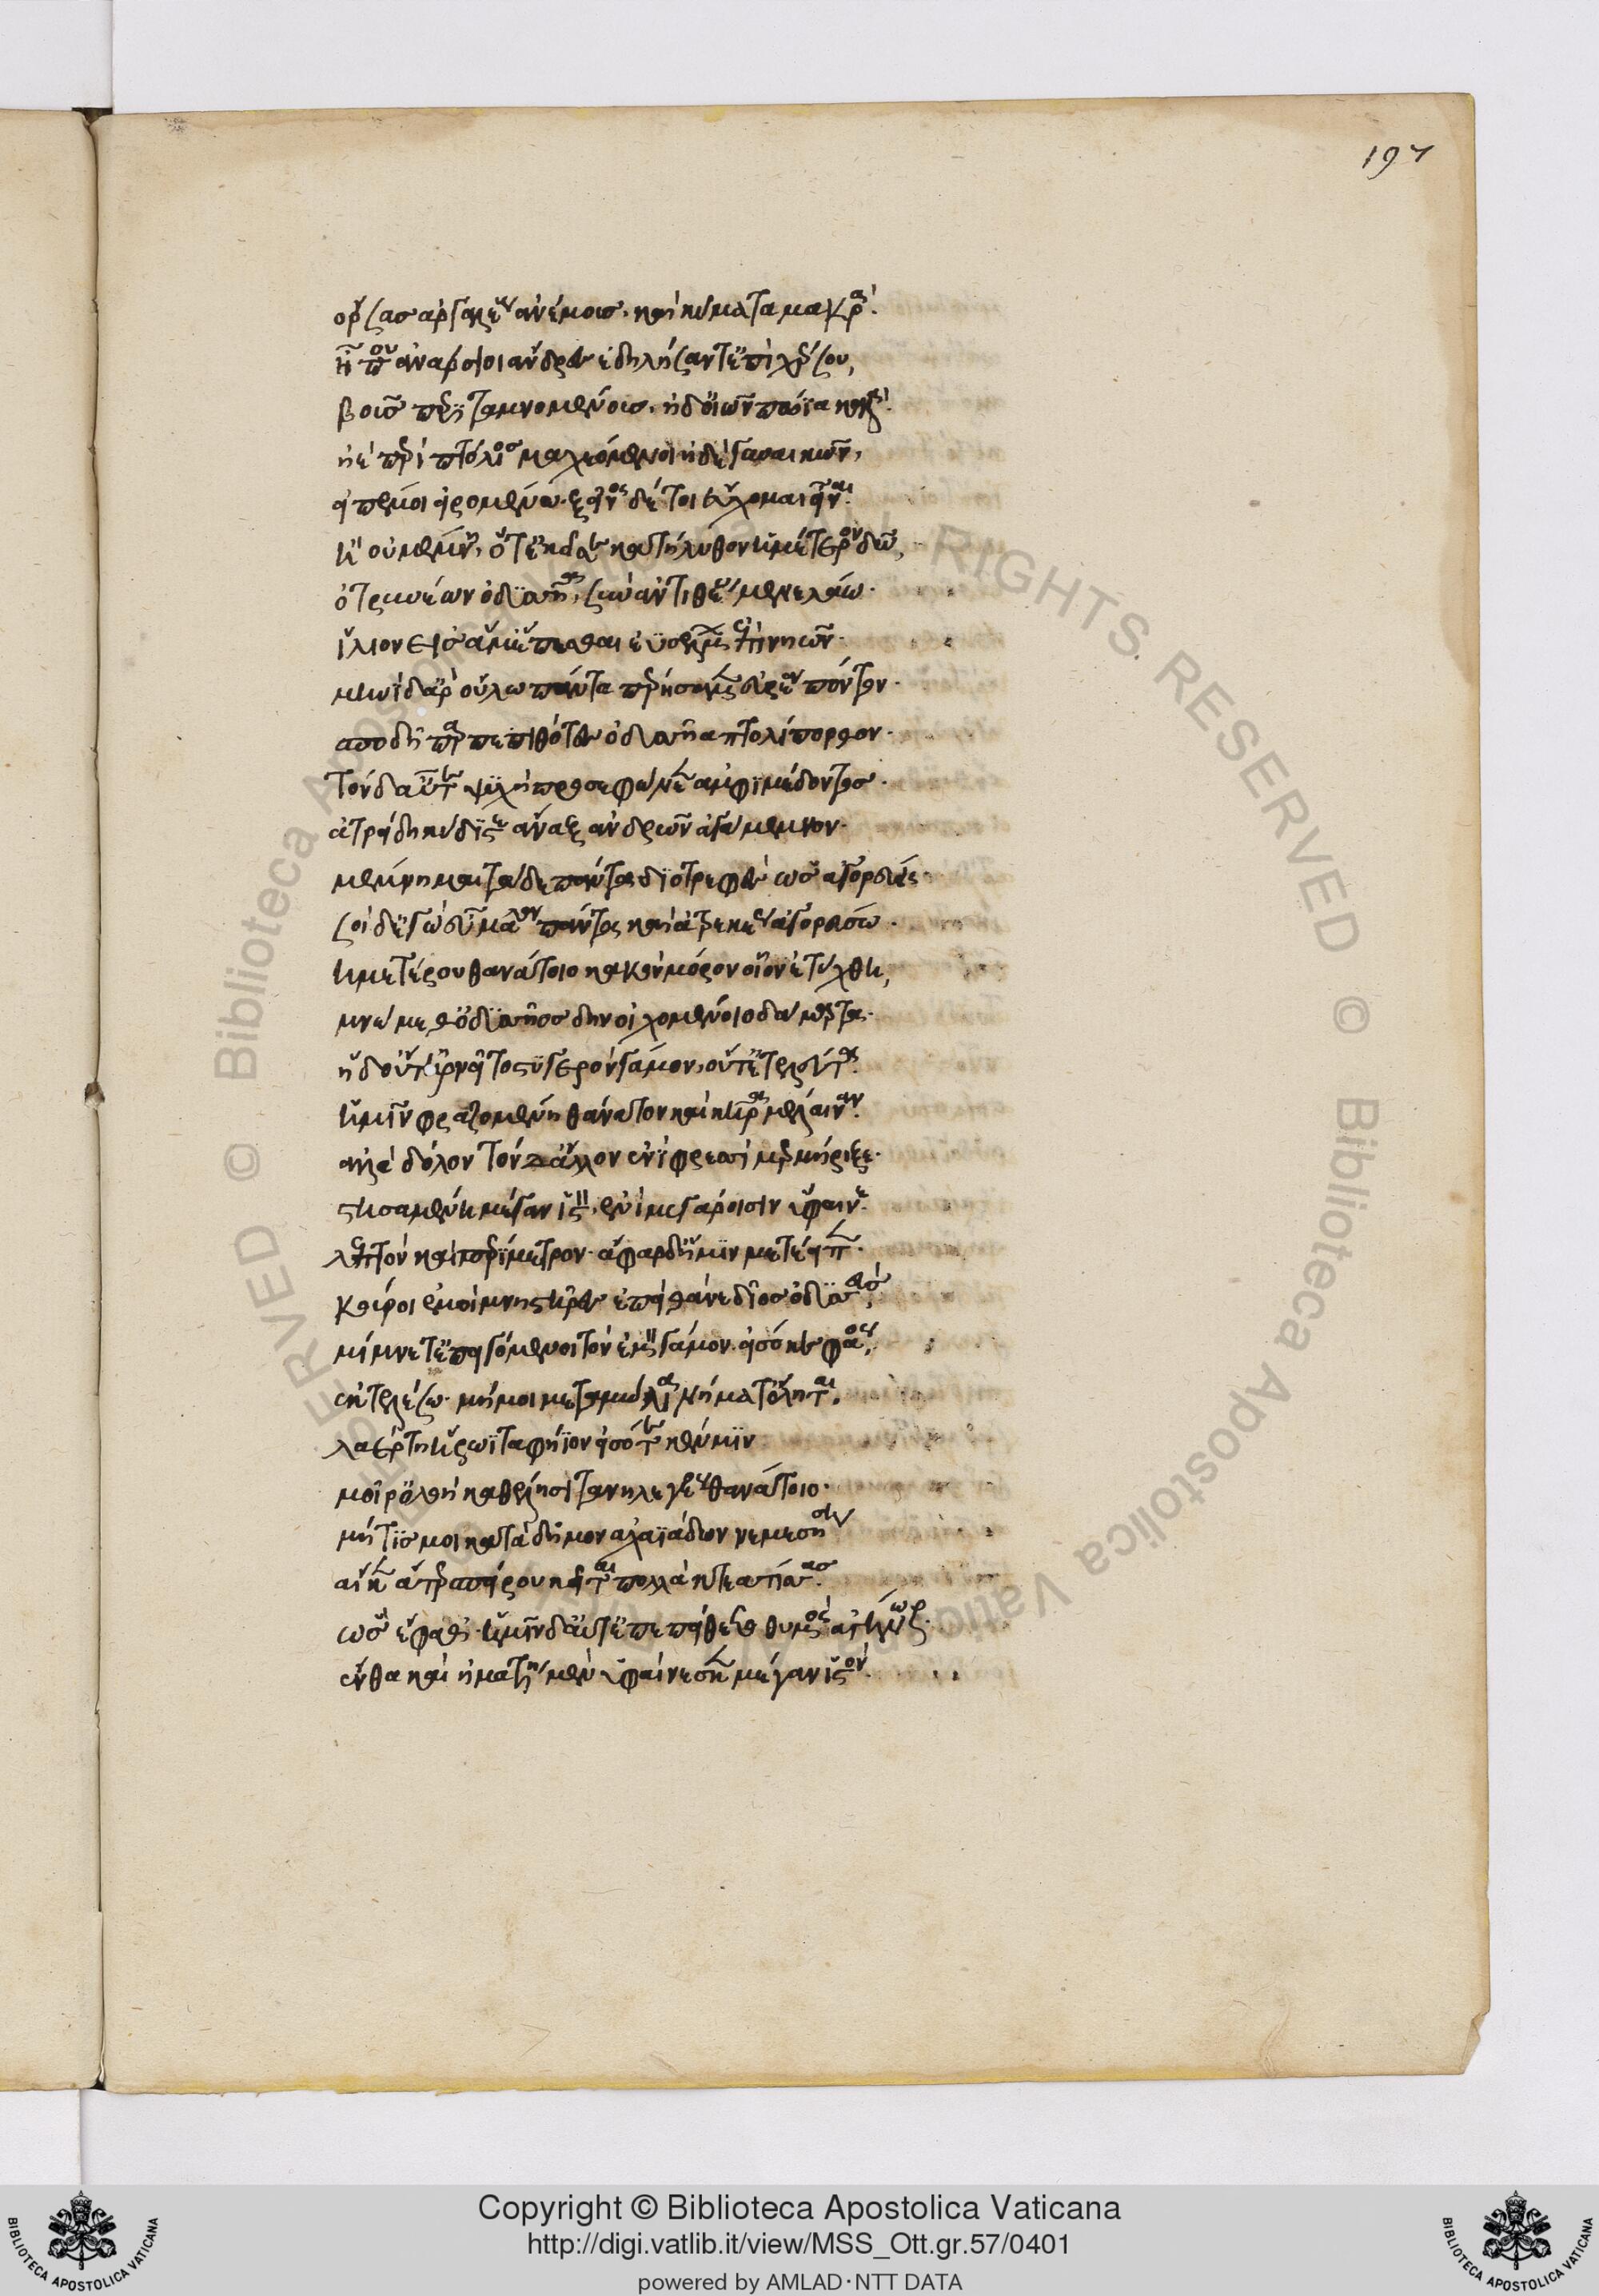 197
ὄρσας ἀργαλέους ἀνέμους καὶ κύματα μακρά.
ἦ που ἀνάρσιοι ἄνδρες ἐδηλήσαντ' ἐπὶ χέρσου,
βοῦς περιταμνομένους ἠδ' οἰῶν πώεα καλά.
ἠὲ περὶ πτόλιος μαχεόμενοι ἠδὲ γυναικῶν,
εἰπέ μοι εἰρομένω. ξεῖνος δέ τοι εὔχομαι εἶναι.
ἦ οὐ μέμνη, ὅτε κεῖσε κατήλυθον ὑμέτερον δῶ,
ὀτρυνέων ὀδυσῆα, σὺν ἀντιθέω μενελάω.
ἴλιον εἰς ἅμ' ἕπεσθαι ἐϋσσέλμων ἐπὶ νηῶν.
μηνὶ δ' ἄρ' οὔλω πάντα περήσαμεν εὐρέα πόντον.
σπουδῆ παρπεπιθόντες ὀδυσῆα πτολίπορθον.
τὸν δ' αὖτε ψυχὴ προσεφώνεεν ἀμφιμέδοντος.
ἀτρείδη κύδιστε ἄναξ ἀνδρῶν ἀγάμεμνον.
μέμνημαι τάδε πάντα διοτρεφὲς ὡς ἀγορεύεις.
σοὶ δ' ἐγὼ εὖ μάλα πάντα καὶ ἀτρεκέως ἀγορεύσω.
ἡμετέρου θανάτοιο κακὸν μόρον οἷον ἐτύχθη,
μνώμεθ' ὀδυσῆος δὴν οἰχομένοιο δάμαρτα.
ἡ δ' οὔτ' ἠρνεῖτο στυγερὸν γάμον, οὔτε τελεύτα
ἡμῖν φραζομένη θάνατον καὶ κῆρα μέλαιναν.
ἀλλὰ δόλον τόνδ' ἄλλον ἐνὶ φρεσὶ μερμήριξε.
στησαμένη μέγαν ἱστὸν, ἐνὶ μεγάροισιν ὕφαινε.
λεπτὸν καὶ περίμετρον. ἄφαρ δ' ἡμῖν μετέειπεν.
κοῦροι ἐμοὶ μνηστῆρες ἐπεὶ θάνε δῖος ὀδυσσεὺς,
μίμνετ' ἐπειγόμενοι τὸν ἐμὸν γάμον. εἰσόκε φᾶρος,
ἐκτελέσω. μή μοι μεταμώλια νήματ' ὄληται,
λαέρτη ἥρωϊ ταφήϊον εἰσότε κέν μιν
μοῖρ' ὀλοὴ καθέλησι τανηλεγέος θανάτοιο.
μήτις μοι κατὰ δῆμον ἀχαιϊάδων νεμεσήση
αἴ κεν ἄτερ σπείρου κεῖται πολλὰ κτεατίσσας.
ὣς ἔφαθ'. ἡμῖν δ' αὖτ' ἐπεπείθετο θυμὸς ἀγήνωρ.
ἔνθα καὶ ἠματίη μὲν ὑφαίνεσκεν μέγαν ἱστόν.
Copyright © Biblioteca Apostolica Vaticana
http://digi.vatlib.it/view/MSS_Ott.gr.57/0401
powered by AMLAD·NTT DATA